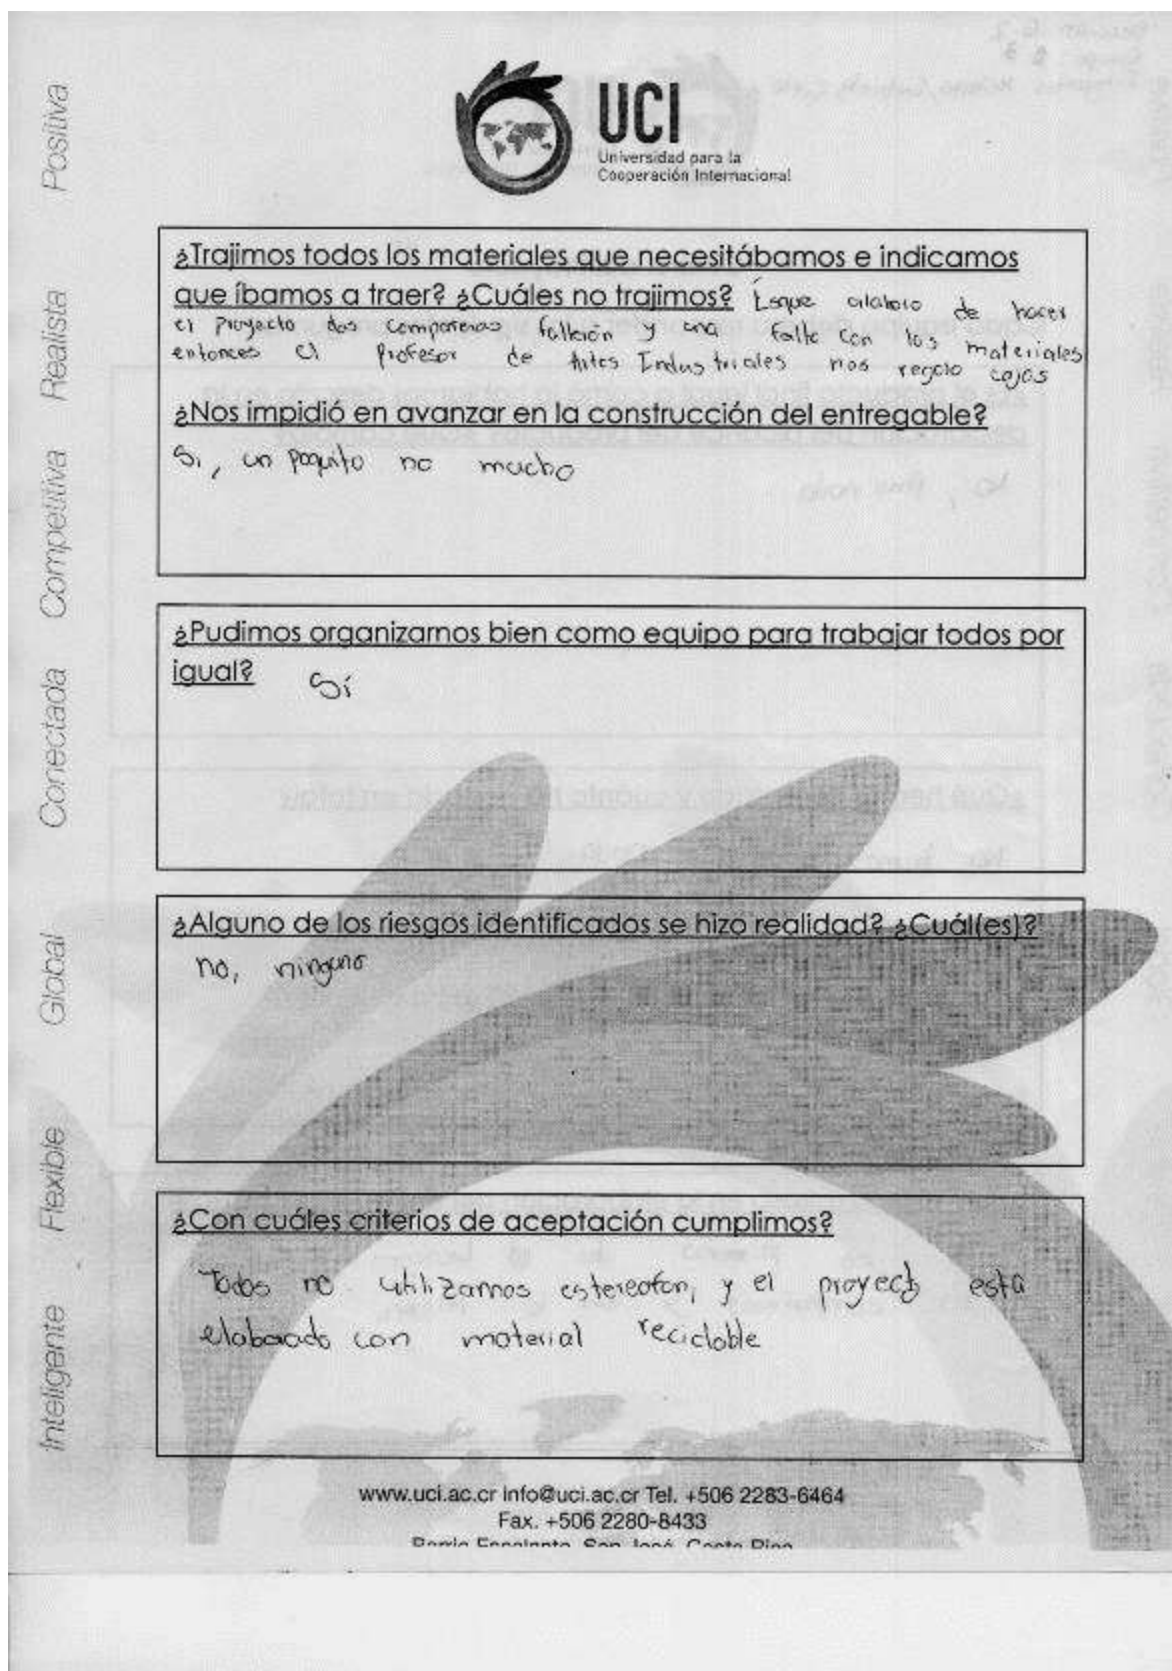 UCI
Universidad para la
Cooperación Internacional
Positiva
Realista
Competitiva
Conectada
Global
Flexible
Inteligente
¿Trajimos todos los materiales que necesitábamos e indicamos
que íbamos a traer? ¿Cuáles no trajimos? Esque alahoro de hacer
el proyecto dos compañeras faltarón y una falto con los materiales
entonces el Profesor de Artes Industriales nos regalo cajas
¿Nos impidió en avanzar en la construcción del entregable?
Si, un poquito no mucho
¿Pudimos organizarnos bien como equipo para trabajar todos por
igual? Sí
¿Alguno de los riesgos identificados se hizo realidad? ¿Cuál(es)?
no, ninguno
¿Con cuáles criterios de aceptación cumplimos?
Todos no utilizamos estereofon, y el proyecto esta
elaborado con material reciclable
www.uci.ac.cr info@uci.ac.cr Tel. +506 2283-6464
Fax. +506 2280-8433
Barrio Escalante, San José, Costa Rica